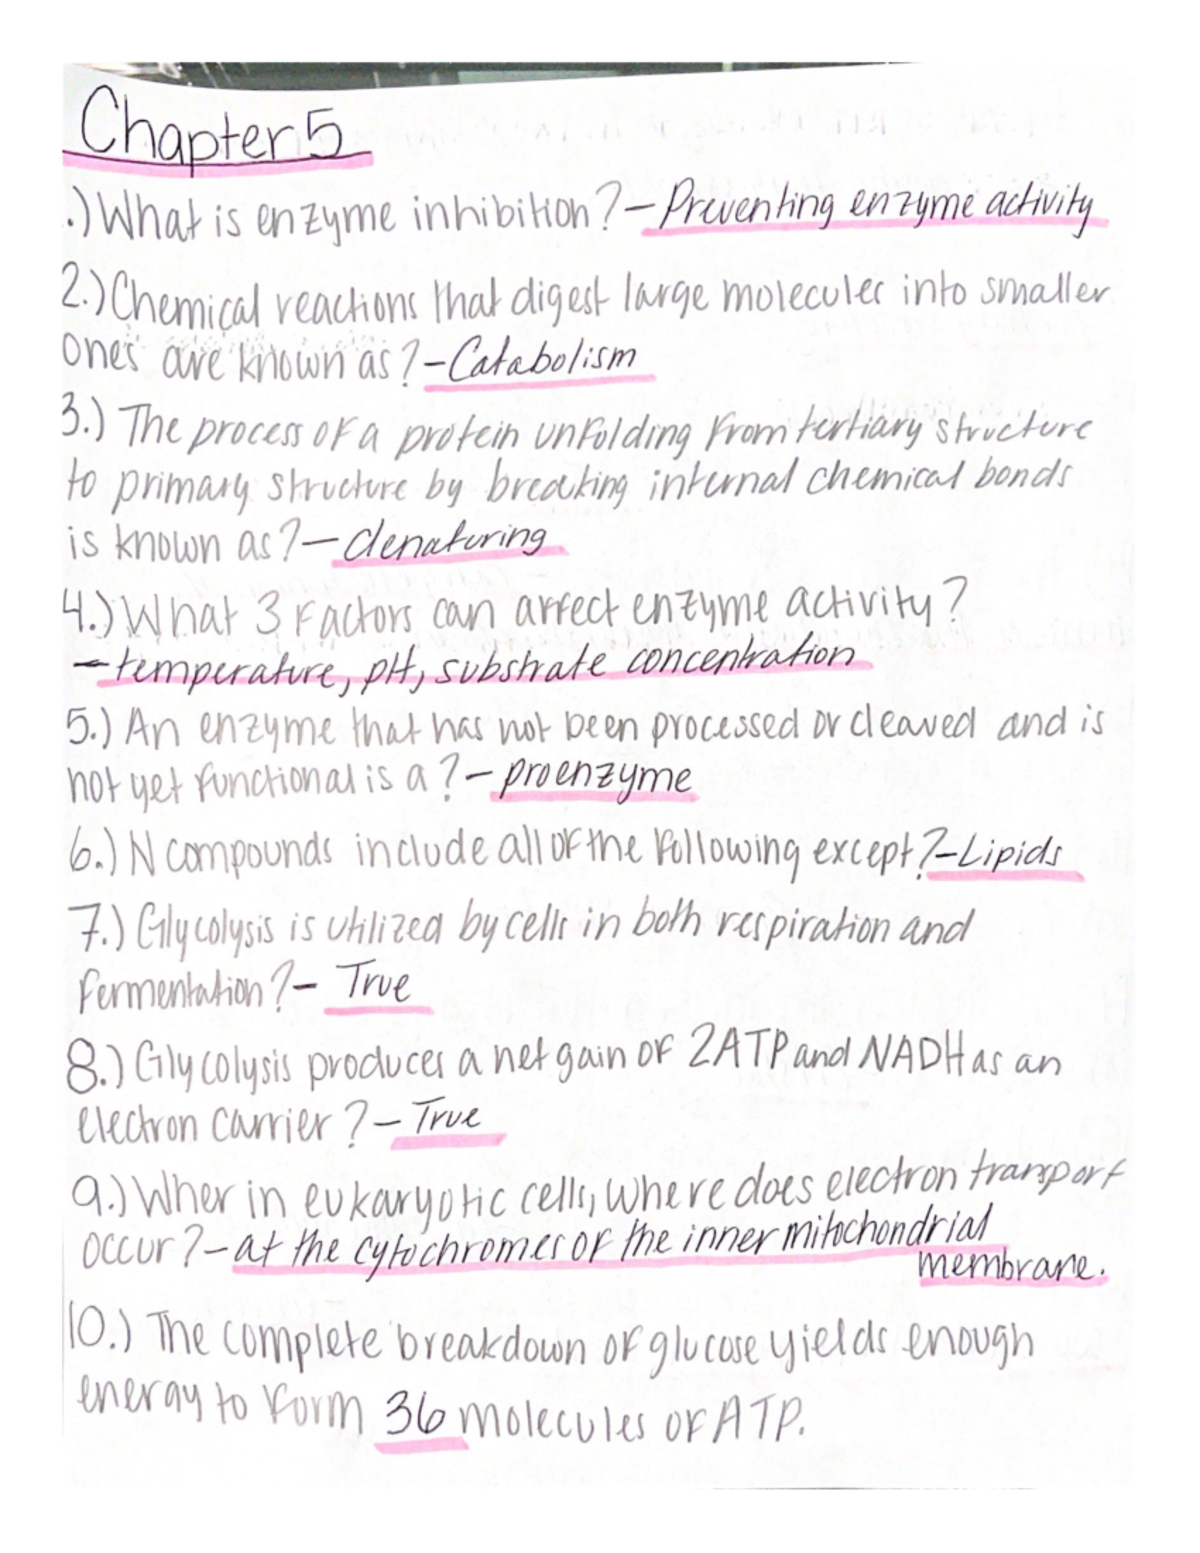 Chapter 5
.) What is enzyme inhibition? - Preventing enzyme activity
2.) Chemical reactions that digest large molecules into smaller
ones are known as? - Catabolism
3.) The process of a protein unfolding from tertiary structure
to primary structure by breaking internal chemical bonds
is known as? - denaturing
4.) What 3 factors can affect enzyme activity?
- temperature, pH, substrate concentration
5.) An enzyme that has not been processed or cleaved and is
not yet functional is a? - proenzyme
6.) N compounds include all of the following except? - Lipids
7.) Glycolysis is utilized by cells in both respiration and
fermentation? - True
8.) Glycolysis produces a net gain of 2ATP and NADH as an
electron carrier? - True
9.) Wher in eukaryotic cells, where does electron transport
occur? - at the cytochromes of the inner mitochondrial
membrane.
10.) The complete breakdown of glucose yields enough
energy to form 36 molecules of ATP.